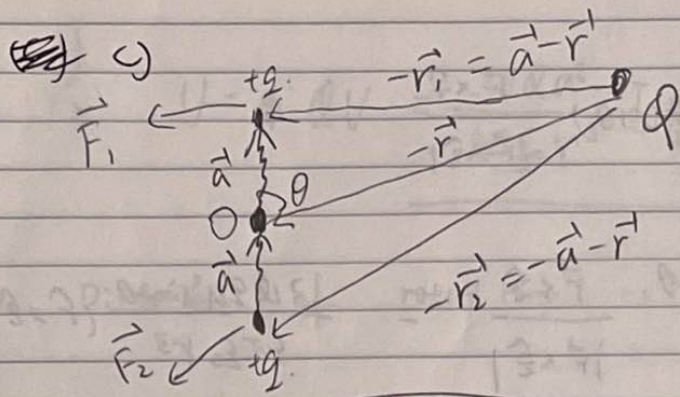 c)
+q.
-r⃗₁ = a⃗ - r⃗
Q
F⃗₁
-r⃗
a⃗
θ
O
a⃗
-r⃗₂ = -a⃗ - r⃗
F⃗₂
+q.